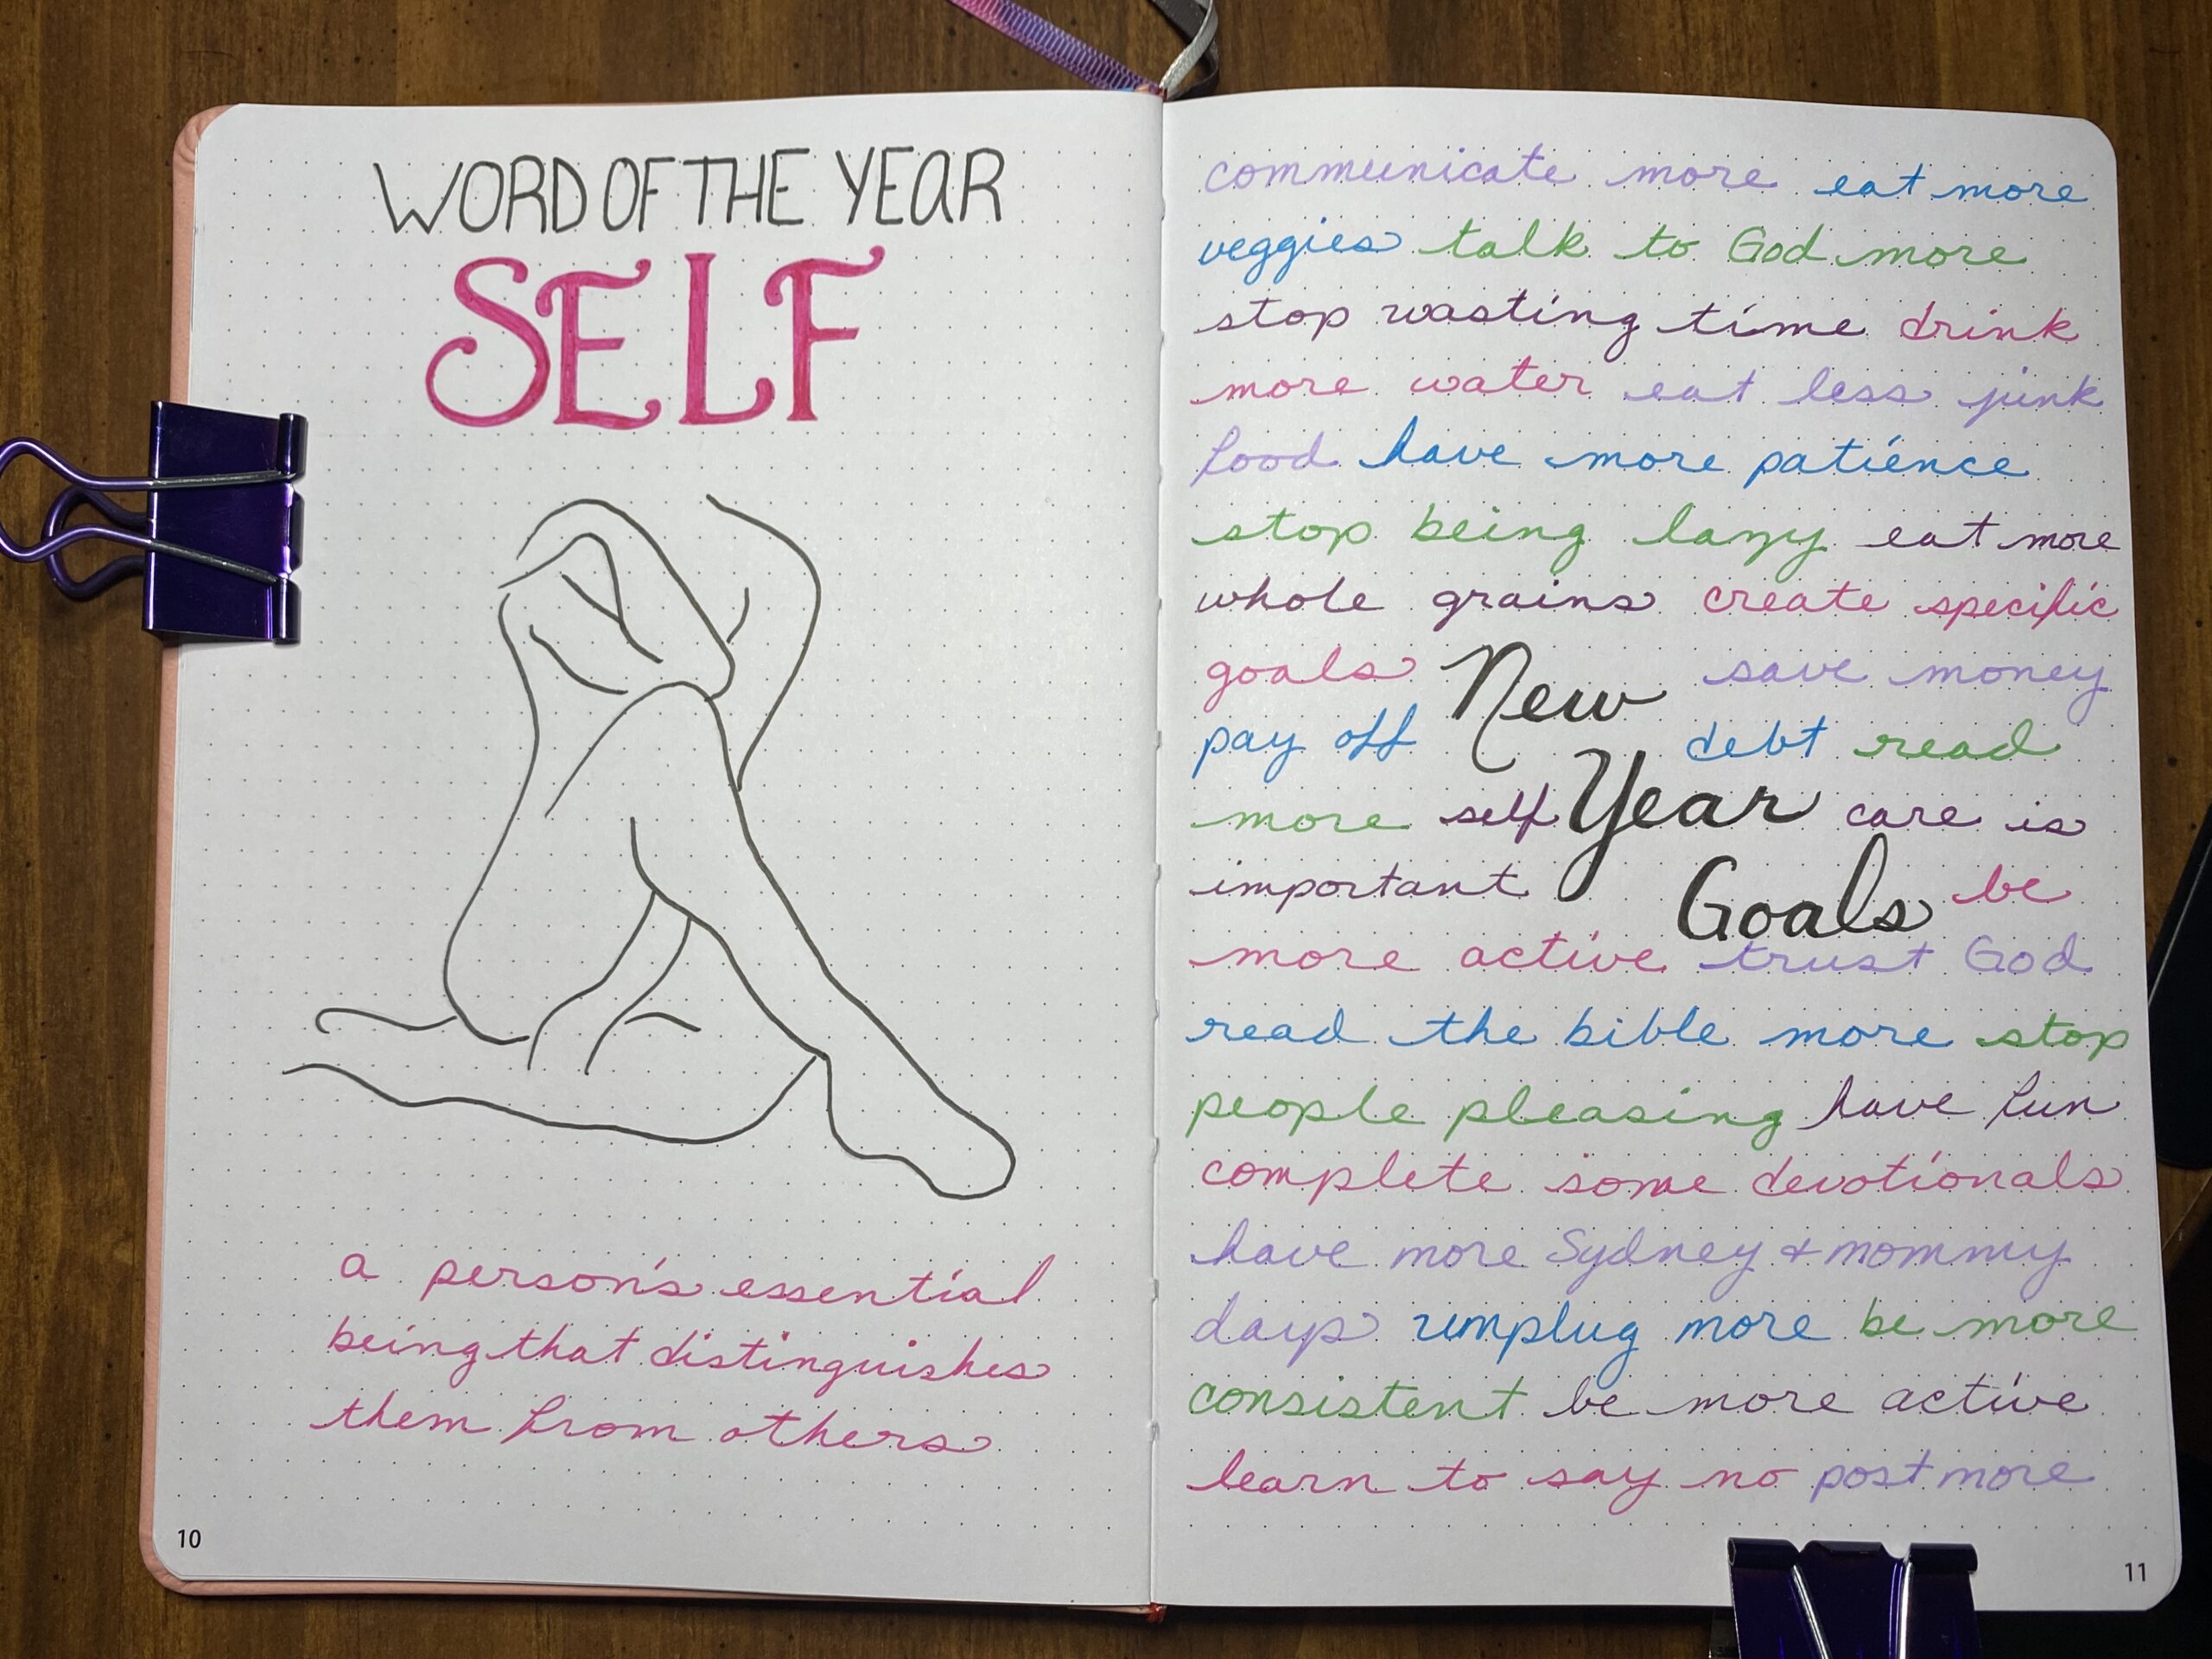 WORD OF THE YEAR
SELF
a person's essential
being that distinguishes
them from others
10
communicate more eat more
veggies talk to God more
stop wasting time drink
more water eat less junk
food have more patience
stop being lazy eat more
whole grains create specific
goals New save money
pay off debt read
more self Year care is
important Goals be
more active trust God
read the bible more stop
people pleasing have fun
complete some devotionals
have more Sydney & mommy
days umplug more be more
consistent be more active
learn to say no post more
11